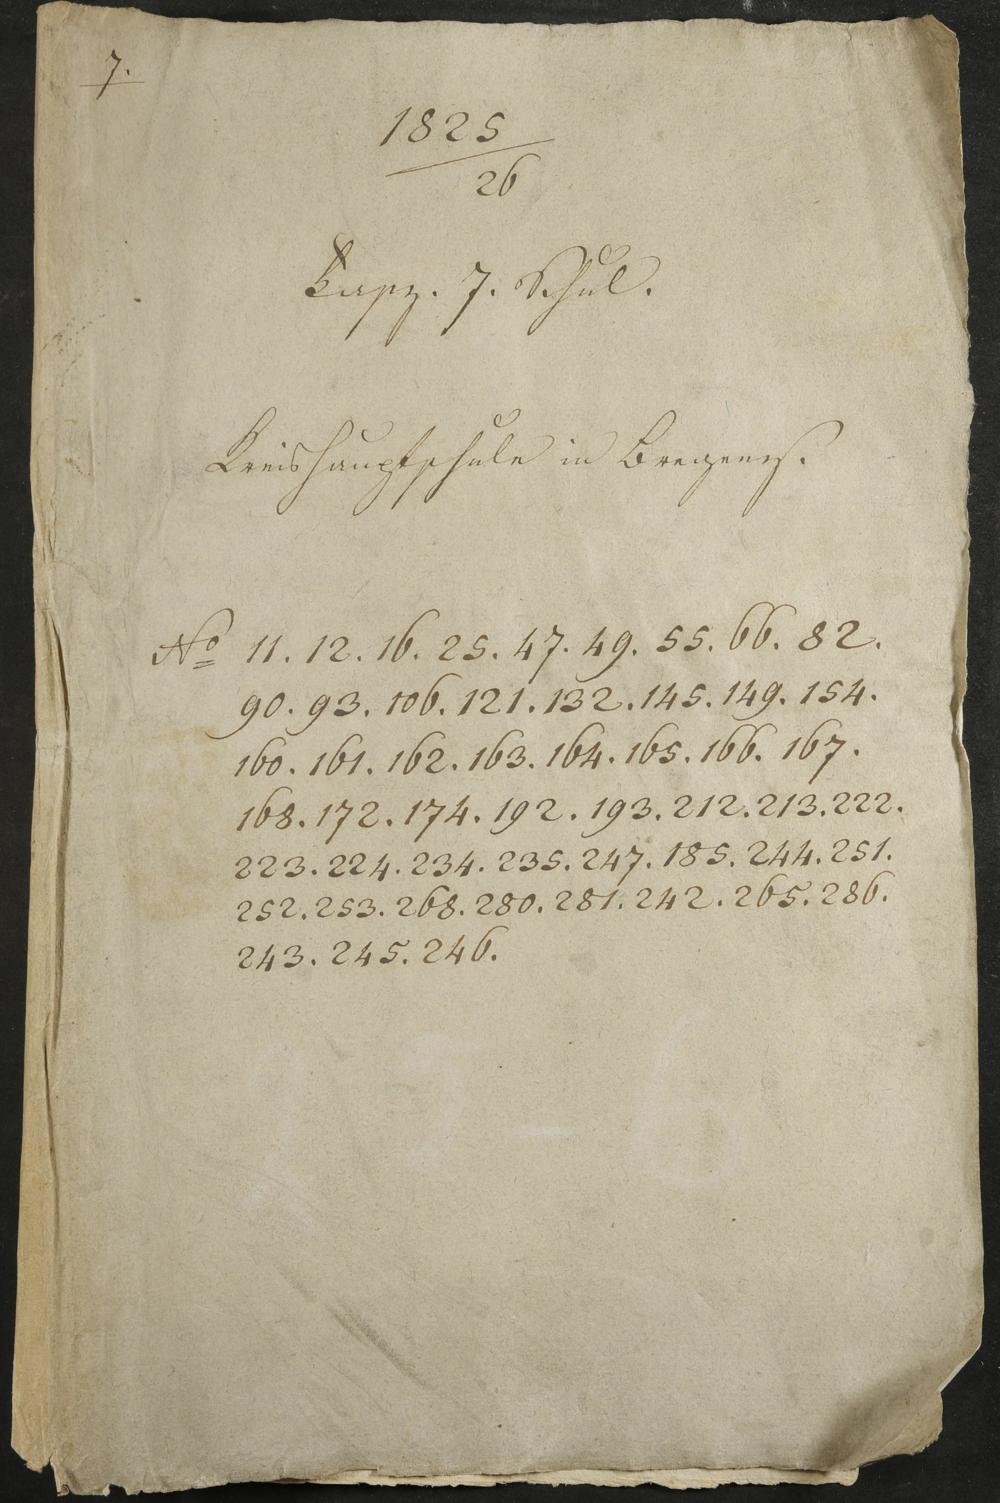 7.
1825
26
7. Schul.
Kreishauptschule in Bregenz.
No 11. 12. 16. 25. 47. 49. 55. 66. 82.
90. 93. 106. 121. 132. 145. 149. 154.
160. 161. 162. 163. 164. 165. 166. 167.
168. 172. 174. 192. 193. 212. 213. 222.
223. 224. 234. 235. 247. 185. 244. 251.
252. 253. 268. 280. 281. 242. 265. 286.
243. 245. 246.